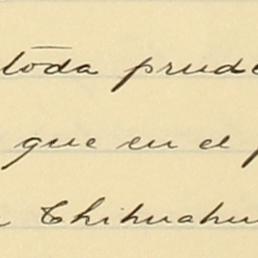 toda prude
que en el p
Chihuahu